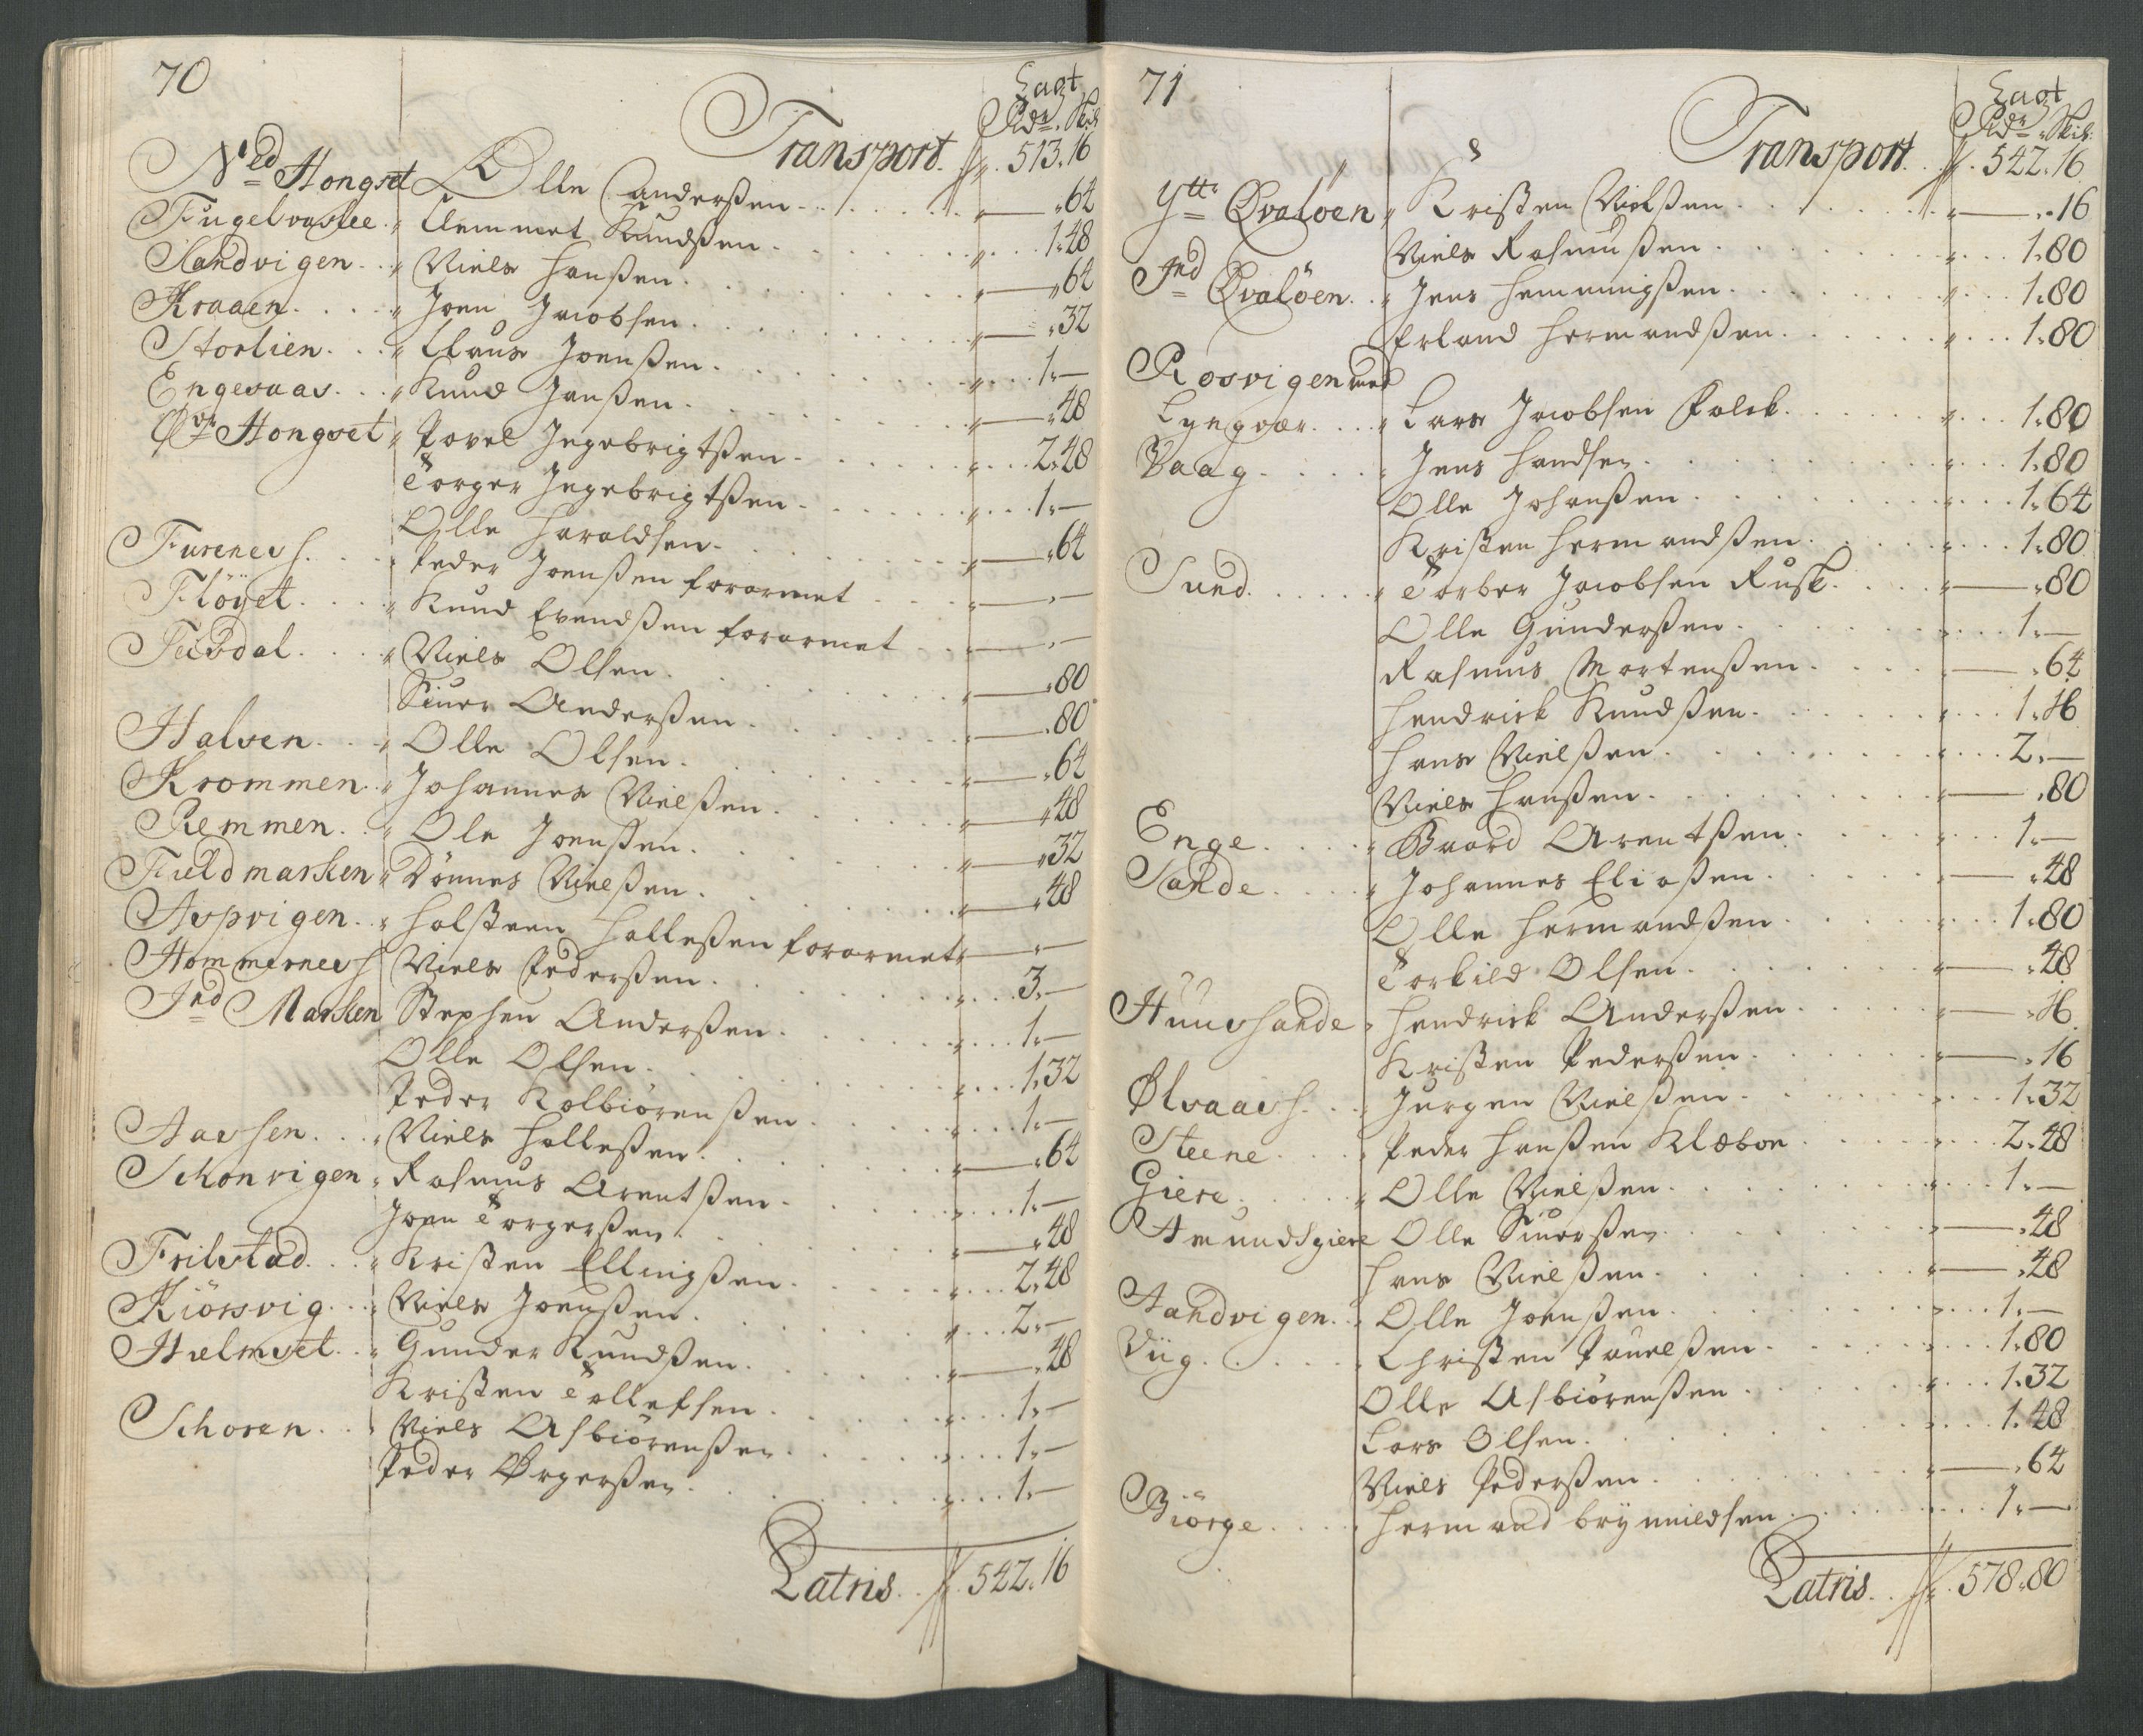 70
Lagt
Rdr. Skil:
Transport. 513.16
Ned Hongset Olle Anderßen 64
Fugelvaslee Clemmet Knudßen 1.48
Sandvigen Niels Hanßen 64
Kraaen Joen Jacobsen 32
Storlien Claus Joenßen 1.—
Engesaas Knud Janßen 48
Øvr Hongset Povel Ingebrigtßen 2.48
Torger Ingebrigtßen 1.—
Olle Haraldsen 64
Furenes Peder Joenßen forarmet —
Flöyet Knud Evendßen forarmet —
Niels Olsen 80
Siuer Anderßen 80
Halsen Olle Olsen 64
Krommen Johannes Nielßen 48
Remmen Ole Joenßen 32
Fieldmarken Dönnes Nielßen 48
Aspvigen Holsteen Halleßen forarmet —
Hommernes Niels Pederßen 3.—
Ind Marken Stephen Anderßen 1.—
Olle Olsen 1.32
Peder Kolbiörenßen 1.—
Aassen Niels Halleßen 64
Schonvigen Rasmus Arentßen 1.—
Joen Torgerßen 48
Frilstad Kristen Ellingßen 2.48
Kiörsvig Niels Joenßen 2.—
Hielmset Gunder Knudßen 48
Kristen Tollefsen 1.—
Schoren Niels Asbiörenßen 1.—
Peder Ørgerßen 1.—
Latris 542.16
71
Lagt
Rdr. Skil:
Transport 542.16
Yttr Qvalöen Kristen Nielßen 16
Niels Rasmußen 1.80
Ind Qvalöen Jens Hemmingßen 1.80
Erland Hermandßen 1.80
Rosvigen med
Lyngvær Lars Jacobsen Falck 1.80
Vaag Jens Handsen 1.80
Olle Johanßen 1.64
Kristen Hermandßen 1.80
Sund Torber Jacobsen Rusk 80
Olle Gunderßen 1.—
Rasmus Mortenßen 64
Hendrick Knudßen 1.16
Hans Nielßen 2.—
Niels Hanßen 80
Enge Baard Arentßen 1.—
Sande Johannes Eliaßen 48
Olle Hermandßen 1.80
Torkild Olsen 48
Huussande Hendrick Anderßen 16
Kristen Pederßen 16
Ølvaas Jürgen Nielßen 1.32
Steene Peder Hanßen Klæboe 2.48
Giere Olle Nielßen 1.—
Amundsgiere Olle Siuerßen 48
Hans Nielßen 48
Sandvigen Olle Joenßen 1.—
Viig Christen Pauelßen 1.80
Olle Asbiörenßen 1.32
Lars Olsen 1.48
Niels Pederßen 64
Biörge Hermand brynnildsen 1.—
Latris 578.80